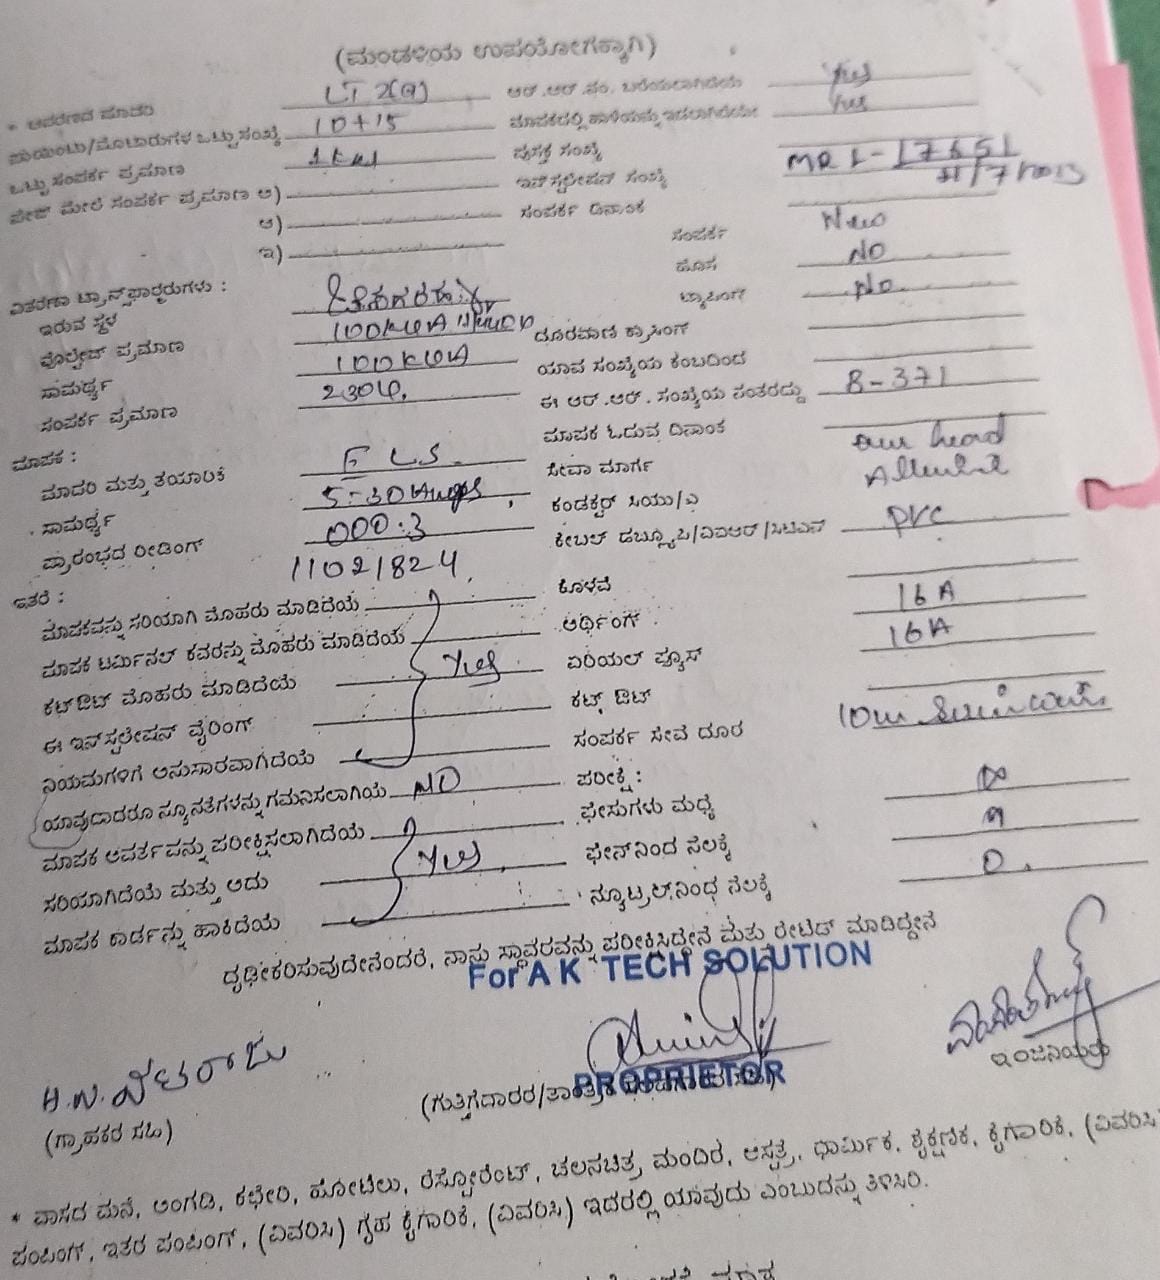 (ಮಂಡಳಿಯ ಉಪಯೋಗಕ್ಕಾಗಿ)
* ಆವರಣದ ಮಾದರಿ LT 2(a) ಆರ್.ಆರ್.ನಂ. ಬರೆಯಲಾಗಿದೆಯೆ Yes
ಪಾಯಿಂಟು/ಮೋಟಾರುಗಳ ಒಟ್ಟು ಸಂಖ್ಯೆ 10+15 ಮಾಪಕದಲ್ಲಿ ಹಾಳೆಯನ್ನು ಇಡಲಾಗಿದೆಯೇ Yes
ಒಟ್ಟು ಸಂಪರ್ಕ ಪ್ರಮಾಣ 1KW ಪುಸ್ತಕ ಸಂಖ್ಯೆ
ಪೇಜ್ ಮೇಲೆ ಸಂಪರ್ಕ ಪ್ರಮಾಣ ಅ) ಇನ್‌ಸ್ಟಲೇಷನ್ ಸಂಖ್ಯೆ MRL-17651
ಆ) ಸಂಪರ್ಕ ದಿನಾಂಕ
ಇ) ಸಂಪರ್ಕ New
ಹೊಸ NO
ವಿತರಣಾ ಟ್ರಾನ್ಸ್‌ಫಾರ್ಮರುಗಳು : ಟ್ಯಾಪಿಂಗ್ No
ಇರುವ ಸ್ಥಳ
ವೋಲ್ಟೇಜ್ ಪ್ರಮಾಣ 100KVA ದೂರವಾಣಿ ಕ್ರಾಸಿಂಗ್
ಸಾಮರ್ಥ್ಯ 100KVA ಯಾವ ಸಂಖ್ಯೆಯ ಕಂಬದಿಂದ
ಸಂಪರ್ಕ ಪ್ರಮಾಣ 230V. ಈ ಆರ್.ಆರ್. ಸಂಖ್ಯೆಯ ನಂತರದ್ದು 8-371
ಮಾಪಕ : ಮಾಪಕ ಓದುವ ದಿನಾಂಕ
ಮಾದರಿ ಮತ್ತು ತಯಾರಿಕೆ ELS ಸೇವಾ ಮಾರ್ಗ over head
ಸಾಮರ್ಥ್ಯ 5-30Amps ಕಂಡಕ್ಟರ್ ಓಯು/ಎ
ಪ್ರಾರಂಭದ ರೀಡಿಂಗ್ 000:3 ಕೇಬಲ್ ಡಬ್ಲ್ಯೂಪಿ/ವಿಐಆರ್/ಸಿಟಿಎಸ್ PVC
11021824
ಇತರೆ : ಕೊಳವೆ
ಮಾಪಕವನ್ನು ಸರಿಯಾಗಿ ಮೊಹರು ಮಾಡಿದೆಯೆ ಅರ್ಥಿಂಗ್ 16A
ಮಾಪಕ ಟರ್ಮಿನಲ್ ಕವರನ್ನು ಮೊಹರು ಮಾಡಿದೆಯೆ ಏರಿಯಲ್ ಫ್ಯೂಸ್ 16A
ಕಟ್‌ಔಟ್ ಮೊಹರು ಮಾಡಿದೆಯೆ Yes ಕಟ್ ಔಟ್
ಈ ಇನ್‌ಸ್ಟಲೇಷನ್ ವೈರಿಂಗ್ ಸಂಪರ್ಕ ಸೇವೆ ದೂರ 10m
ನಿಯಮಗಳಿಗೆ ಅನುಸಾರವಾಗಿದೆಯೆ ಪರೀಕ್ಷೆ :
ಯಾವುದಾದರೂ ನ್ಯೂನತೆಗಳನ್ನು ಗಮನಿಸಲಾಗಿಯೆ NO ಫೇಸುಗಳು ಮಧ್ಯೆ ∞
ಮಾಪಕ ಆವರ್ತವನ್ನು ಪರೀಕ್ಷಿಸಲಾಗಿದೆಯೆ ಫೇಸ್‌ನಿಂದ ನೆಲಕ್ಕೆ
ಸರಿಯಾಗಿದೆಯೆ ಮತ್ತು ಅದು Yes ನ್ಯೂಟ್ರಲ್‌ನಿಂಧ ನೆಲಕ್ಕೆ 0.
ಮಾಪಕ ಕಾರ್ಡನ್ನು ಹಾಕಿದೆಯೆ
ದೃಢೀಕರಿಸುವುದೇನೆಂದರೆ, ನಾನು ಸ್ಥಾವರವನ್ನು ಪರೀಕ್ಷಿಸಿದ್ದೇನೆ ಮತು ರೇಟೆಡ್ ಮಾಡಿದ್ದೇನೆ
For A K TECH SOLUTION
PROPRIETOR
ಇಂಜಿನಿಯರು
(ಗ್ರಾಹಕರ ಸಹಿ)
* ವಾಸದ ಮನೆ, ಅಂಗಡಿ, ಕಛೇರಿ, ಹೋಟೆಲು, ರೆಸ್ಟೋರೆಂಟ್, ಚಲನಚಿತ್ರ ಮಂದಿರ, ಆಸ್ಪತ್ರೆ, ಧಾರ್ಮಿಕ, ಶೈಕ್ಷಣಿಕ, ಕೈಗಾರಿಕೆ, (ವಿವರಿಸಿ
ಪಂಪಿಂಗ್, ಇತರ ಪಂಪಿಂಗ್, (ವಿವರಿಸಿ) ಗೃಹ ಕೈಗಾರಿಕೆ, (ವಿವರಿಸಿ) ಇದರಲ್ಲಿ ಯಾವುದು ಎಂಬುದನ್ನು ತಿಳಿಸಿರಿ.